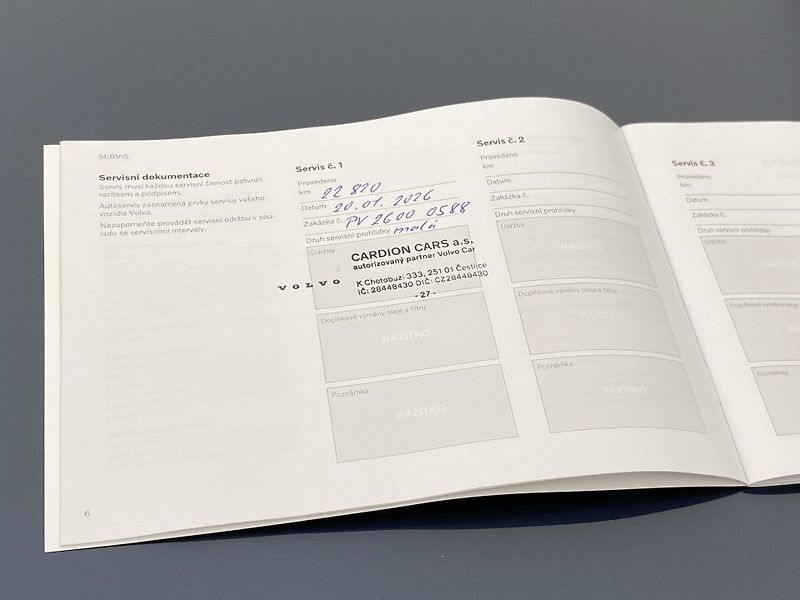 SERVIS
Servisní dokumentace
Servis musí každou servisní činnost potvrdit
razítkem a podpisem.
Autoservis zaznamená prvky servisu vašeho
vozidla Volvo.
Nezapomeňte provádět servisní údržbu v sou-
ladu se servisními intervaly.
Servis č. 1
Provedeno
km 22 820
Datum 20.01.2026
Zakázka č. PV 2600 0588
Druh servisní prohlídky malá
Údržba
CARDION CARS a.s.
autorizovaný partner Volvo Car
VOLVO
K Chotobuzi 333, 251 01 Čestlice
IČ: 28448430 DIČ: CZ28448430
- 27 -
Doplňkové výměny oleje a filtru
RAZÍTKO
Poznámka
RAZÍTKO
Servis č. 2
Provedeno
km
Datum
Zakázka č.
Druh servisní prohlídky
Údržba
RAZÍTKO
Doplňkové výměny oleje a filtru
RAZÍTKO
Poznámka
RAZÍTKO
Servis č. 3
Provedeno
km
Datum
Zakázka č.
Druh servisní prohlídky
Údržba
Doplňkové
Poznámka
6